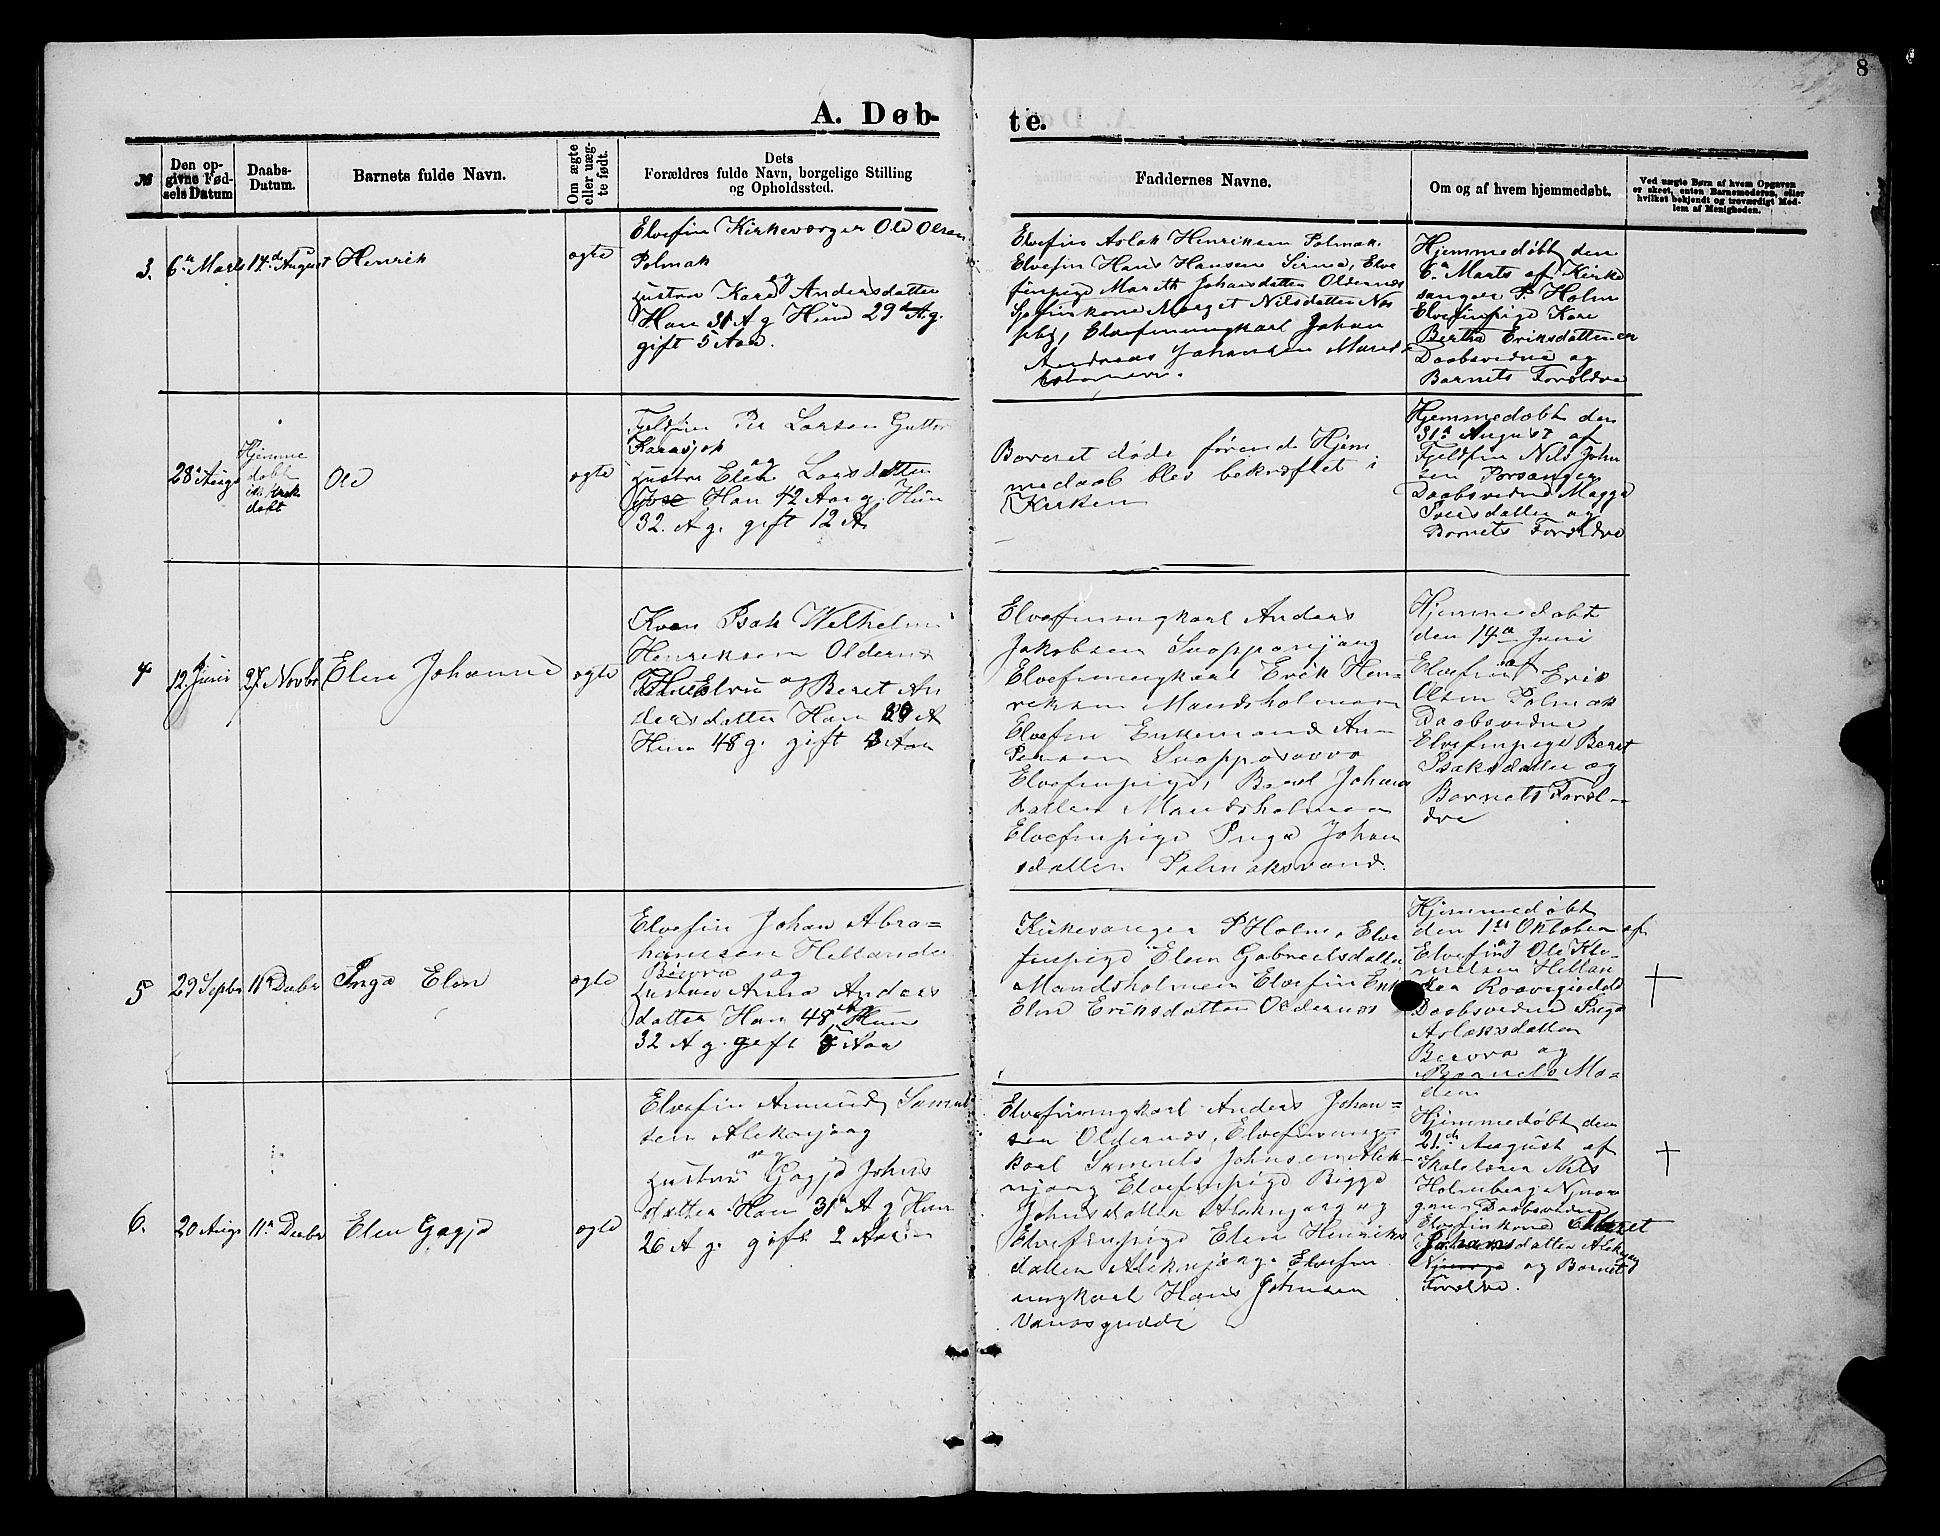 8
A. Døb-
te.
№
Den op-
givne Fød-
sels Datum
Daabs-
Datum.
Barnets fulde Navn.
Om ægte
eller uæg-
te født.
Dets
Forældres fulde Navn, borgelige Stilling
og Opholdssted.
Faddernes Navne.
Om og af hvem hjemmedøbt.
Ved uægte Børn af hvem Opgaven
er skeet, enten Barnemoderen, eller
hvilket bekjendt og troværdigt Med-
lem af Menigheden.
3.
6 Marts
14de August
Henrik
ægte
Elvefin Kirkeværger Ole Olsen
Polmak
og
Hustru Kare Andersdatter
Han 31 A g Hun 29 A g.
gift 5 Aar.
Elvefin Aslak Henriksen Polmak.
Elvefin Hans Hansen Sirma, Elve
finpige Mareth Johansdatter Oldernæs
Søfinkone Marget Nilsdatter Næs
seby, Elvefinungkarl Johan
Andreas Johansen
Hjemmedøbt den
6 Marts af Kirke
sanger P Holm
Elvefinpige Kare
Bertha Eriksdatter er
Daabsvidne og
Barnets Forældre
28 Augs
Hjemme
døbt
ikke
døbt
Ole
ægte
Fjeldfin Per Larsen
Karasjok
og
Hustru Elen Larsdatter
Han 42 Aar g. Hun
32. A g. gift 12 A
Barnet døde førend Hjem
medaab blev bekræftet i
Kirken
Hjemmedøbt den
31 August af
Fjeldfin Nils John
sen Porsanger
Daabsvidne Magga
Iversdatter og
Barnets Forældre
4
12 Juni
27. Novbr
Elen Johanne
ægte
Kvæn Isak Wilhelm
Henriksen Oldernæs
og
Hustru Beret An
dersdatter Han 39 A
Hun 48 g. gift Aar
Elvefinungkarl Anders
Jakobsen Suoppanjarg
Elvefinungkarl Erik Hen-
riksen Mandsholmen
Elvefin Enkemand An
Persen
Elvefinpige Beret Johans
datter Mandsholmen
Elvefinpige Inga Johan
sdatter Polmaksvand.
Hjemmedøbt
den 14 Juni
af
Elvefin Erik
Olsen Polmak
Daabsvidne
Elvefinpige Beret
Isaksdatter og
Barnets Foræl-
dre
5
29 Septbr
11 Decbr
Inga Elen
ægte
Elvefin Johan Abra-
hamsen Hellander
og
Hustru Anna Anders
datter Han 48 Hun
32 A g. gift Aar
Kirkesanger P Holm, Elve
finpige Elen Gabrielsdatter
Mandsholmen Elvefin Enke
Elen Eriksdatter Oldernæs
Hjemmedøbt
den 1ste Oktober af
Elvefin Ole Kle-
metsen Hellan
der
Daabsvidne Inga
Aslaksdatter
og
Barnets Mo-
der
6.
20 Augs
11 Decbr
Elen Gagja
ægte
Elvefin Amund Samuel
sen Aleknjarg
og
Hustru Gagja Johns
datter Han 31 A g Hun
26 A g. gift 2 Aar
Elvefinungkarl Anders Johan-
sen Oldernæs, Elvefinung-
karl Samuel Johnsen Alek-
njarg Elvefinpige Bigga
Johnsdatter Aleknjarg og
Elvefinpige Elen Henriks
datter Aleknjarg, Elvefin
ungkarl Hans Johnsen
Hjemmedøbt den
21de August af
Skolelærer Nils
Holmberg
Daabsvidne
Elvefinkone Maret
Johansdatter
og Barnets
Forældre.